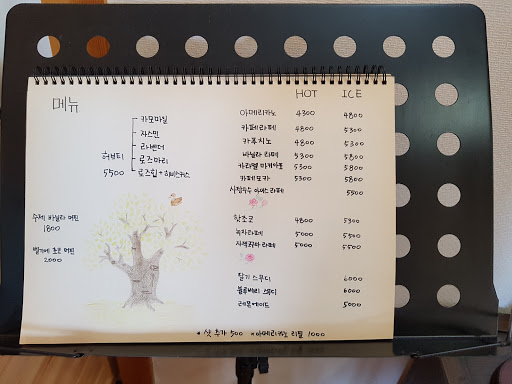 메뉴
HOT ICE
허브티 5500
카모마일
쟈스민
라벤더
로즈마리
로즈힙+히비스커스
수제 바닐라 머핀
1800
벨기에 초코 머핀
2000
아메리카노 4300 4800
카페라떼 4800 5300
카푸치노 4800 5300
바닐라 라떼 5300 5800
카라멜 마끼아또 5300 5800
카페모카 5300 5800
아이스 라떼 5500
핫초코 4800 5300
녹차라떼 5000 5500
자색고구마 라떼 5000 5500
딸기 스무디 6000
블루베리 스무디 6000
레몬에이드 5000
* 샷 추가 500 * 아메리카노 리필 1000